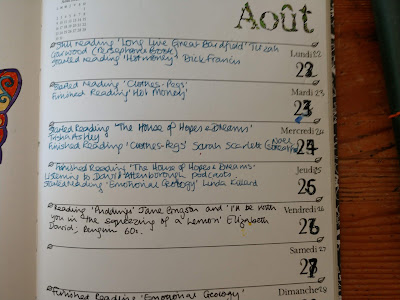 Août
Still reading 'Long Live Great Bardfield' Tirzah
Garwood (Persephone Book)
Started reading 'Hot Money' Dick Francis
Lundi 22
22
Started Reading 'Clothes-Pegs'
Finished Reading 'Hot Money'
Mardi 23
23
Started Reading 'The House of Hopes & Dreams'
Trisha Ashley
Finished Reading 'Clothes-Pegs' Susan Scarlett (Noel
Streatfeild)
Mercredi 24
24
Finished Reading 'The House of Hopes & Dreams'
Listening to David Attenborough podcasts.
Started reading 'Emotional Geology' Linda Gillard
Jeudi 25
25
Reading 'Puddings' Jane Grigson and 'I'll be with
you in the squeezing of a Lemon' Elizabeth
David, Penguin 60s.
Vendredi 26
26
Samedi 27
27
Finished Reading 'Emotional Geology'
Dimanche 28